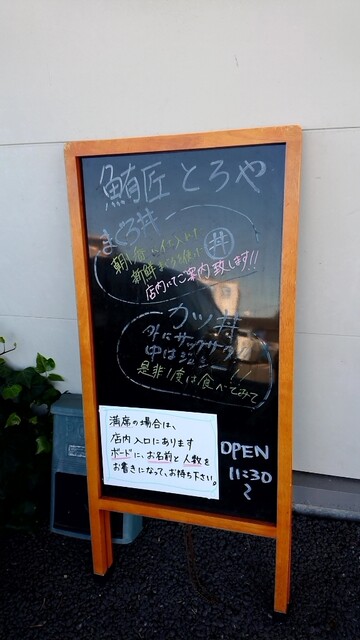 鮪匠 とろや
まぐろ丼
朝 仕入れ
新鮮まぐろを使い
丼
店内にてご案内致します!!
カツ丼
外はサックサク
中はジューシー!!
是非1度は食べてみて
満席の場合は、
店内入口にあります
ボードに、お名前と人数を
お書きになって、お待ち下さい。
OPEN
11:30
〜